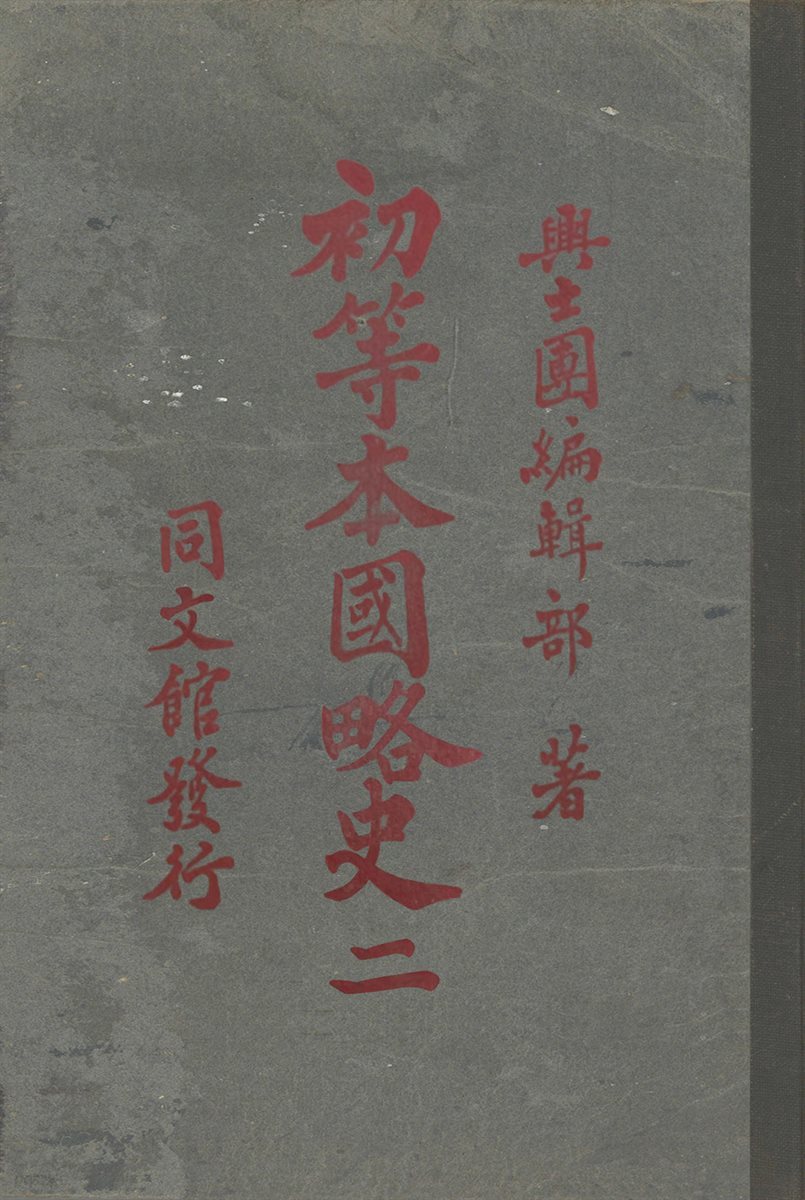 興士團編輯部 著
初等本國略史 二
同文館發行